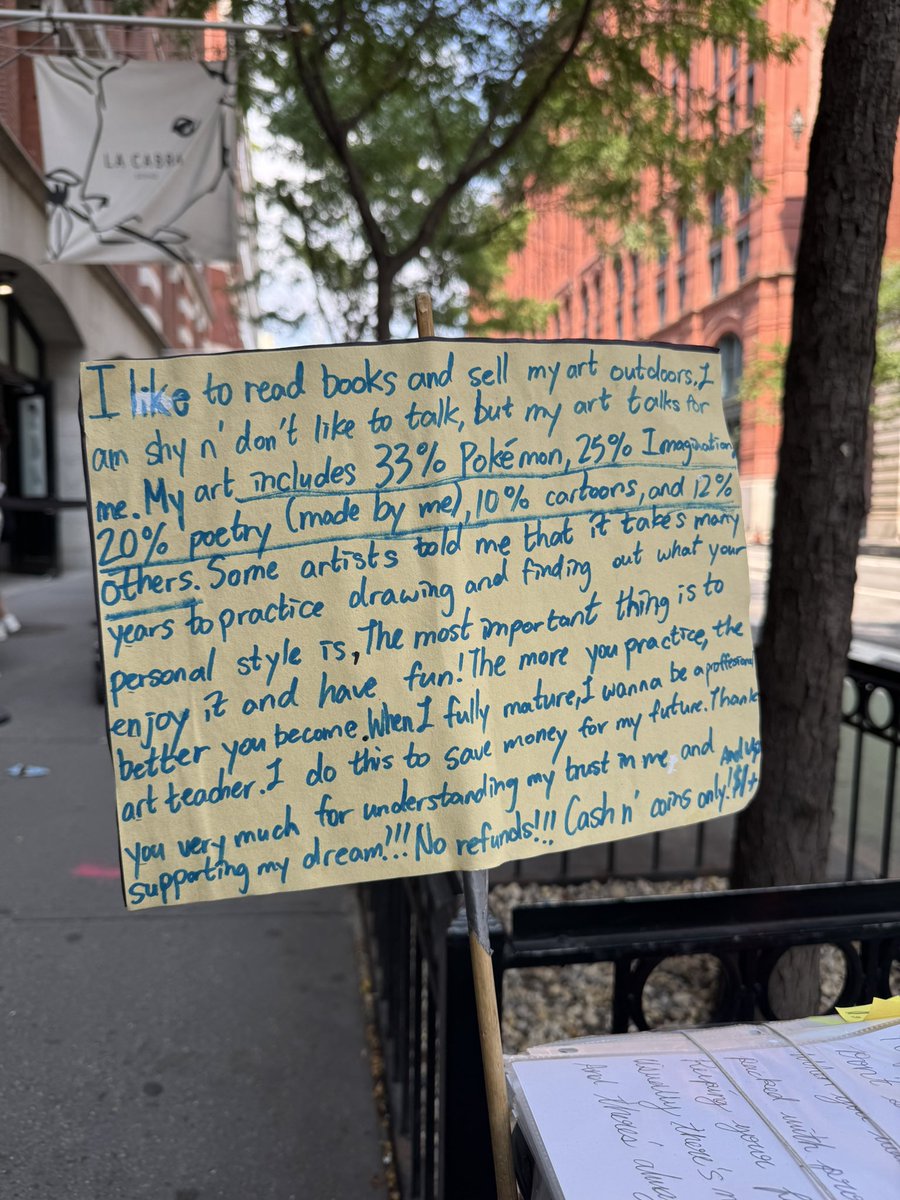 LA CABRA
I like to read books and sell my art outdoors. I
am shy n' don't like to talk, but my art talks for
me. My art includes 33% Pokémon, 25% Imagination,
20% poetry (made by me), 10% cartoons, and 12%
others. Some artists told me that it takes many
years to practice drawing and finding out what your
personal style is, The most important thing is to
enjoy it and have fun! The more you practice, the
better you become. When I fully mature, I wanna be a proffesional
art teacher. I do this to save money for my future. Thank
you very much for understanding my trust in me, and
supporting my dream!!! No refunds!!! Cash n' coins only! $1+
And up
Don't
you
packed with
keeping your
usually there's
And there's